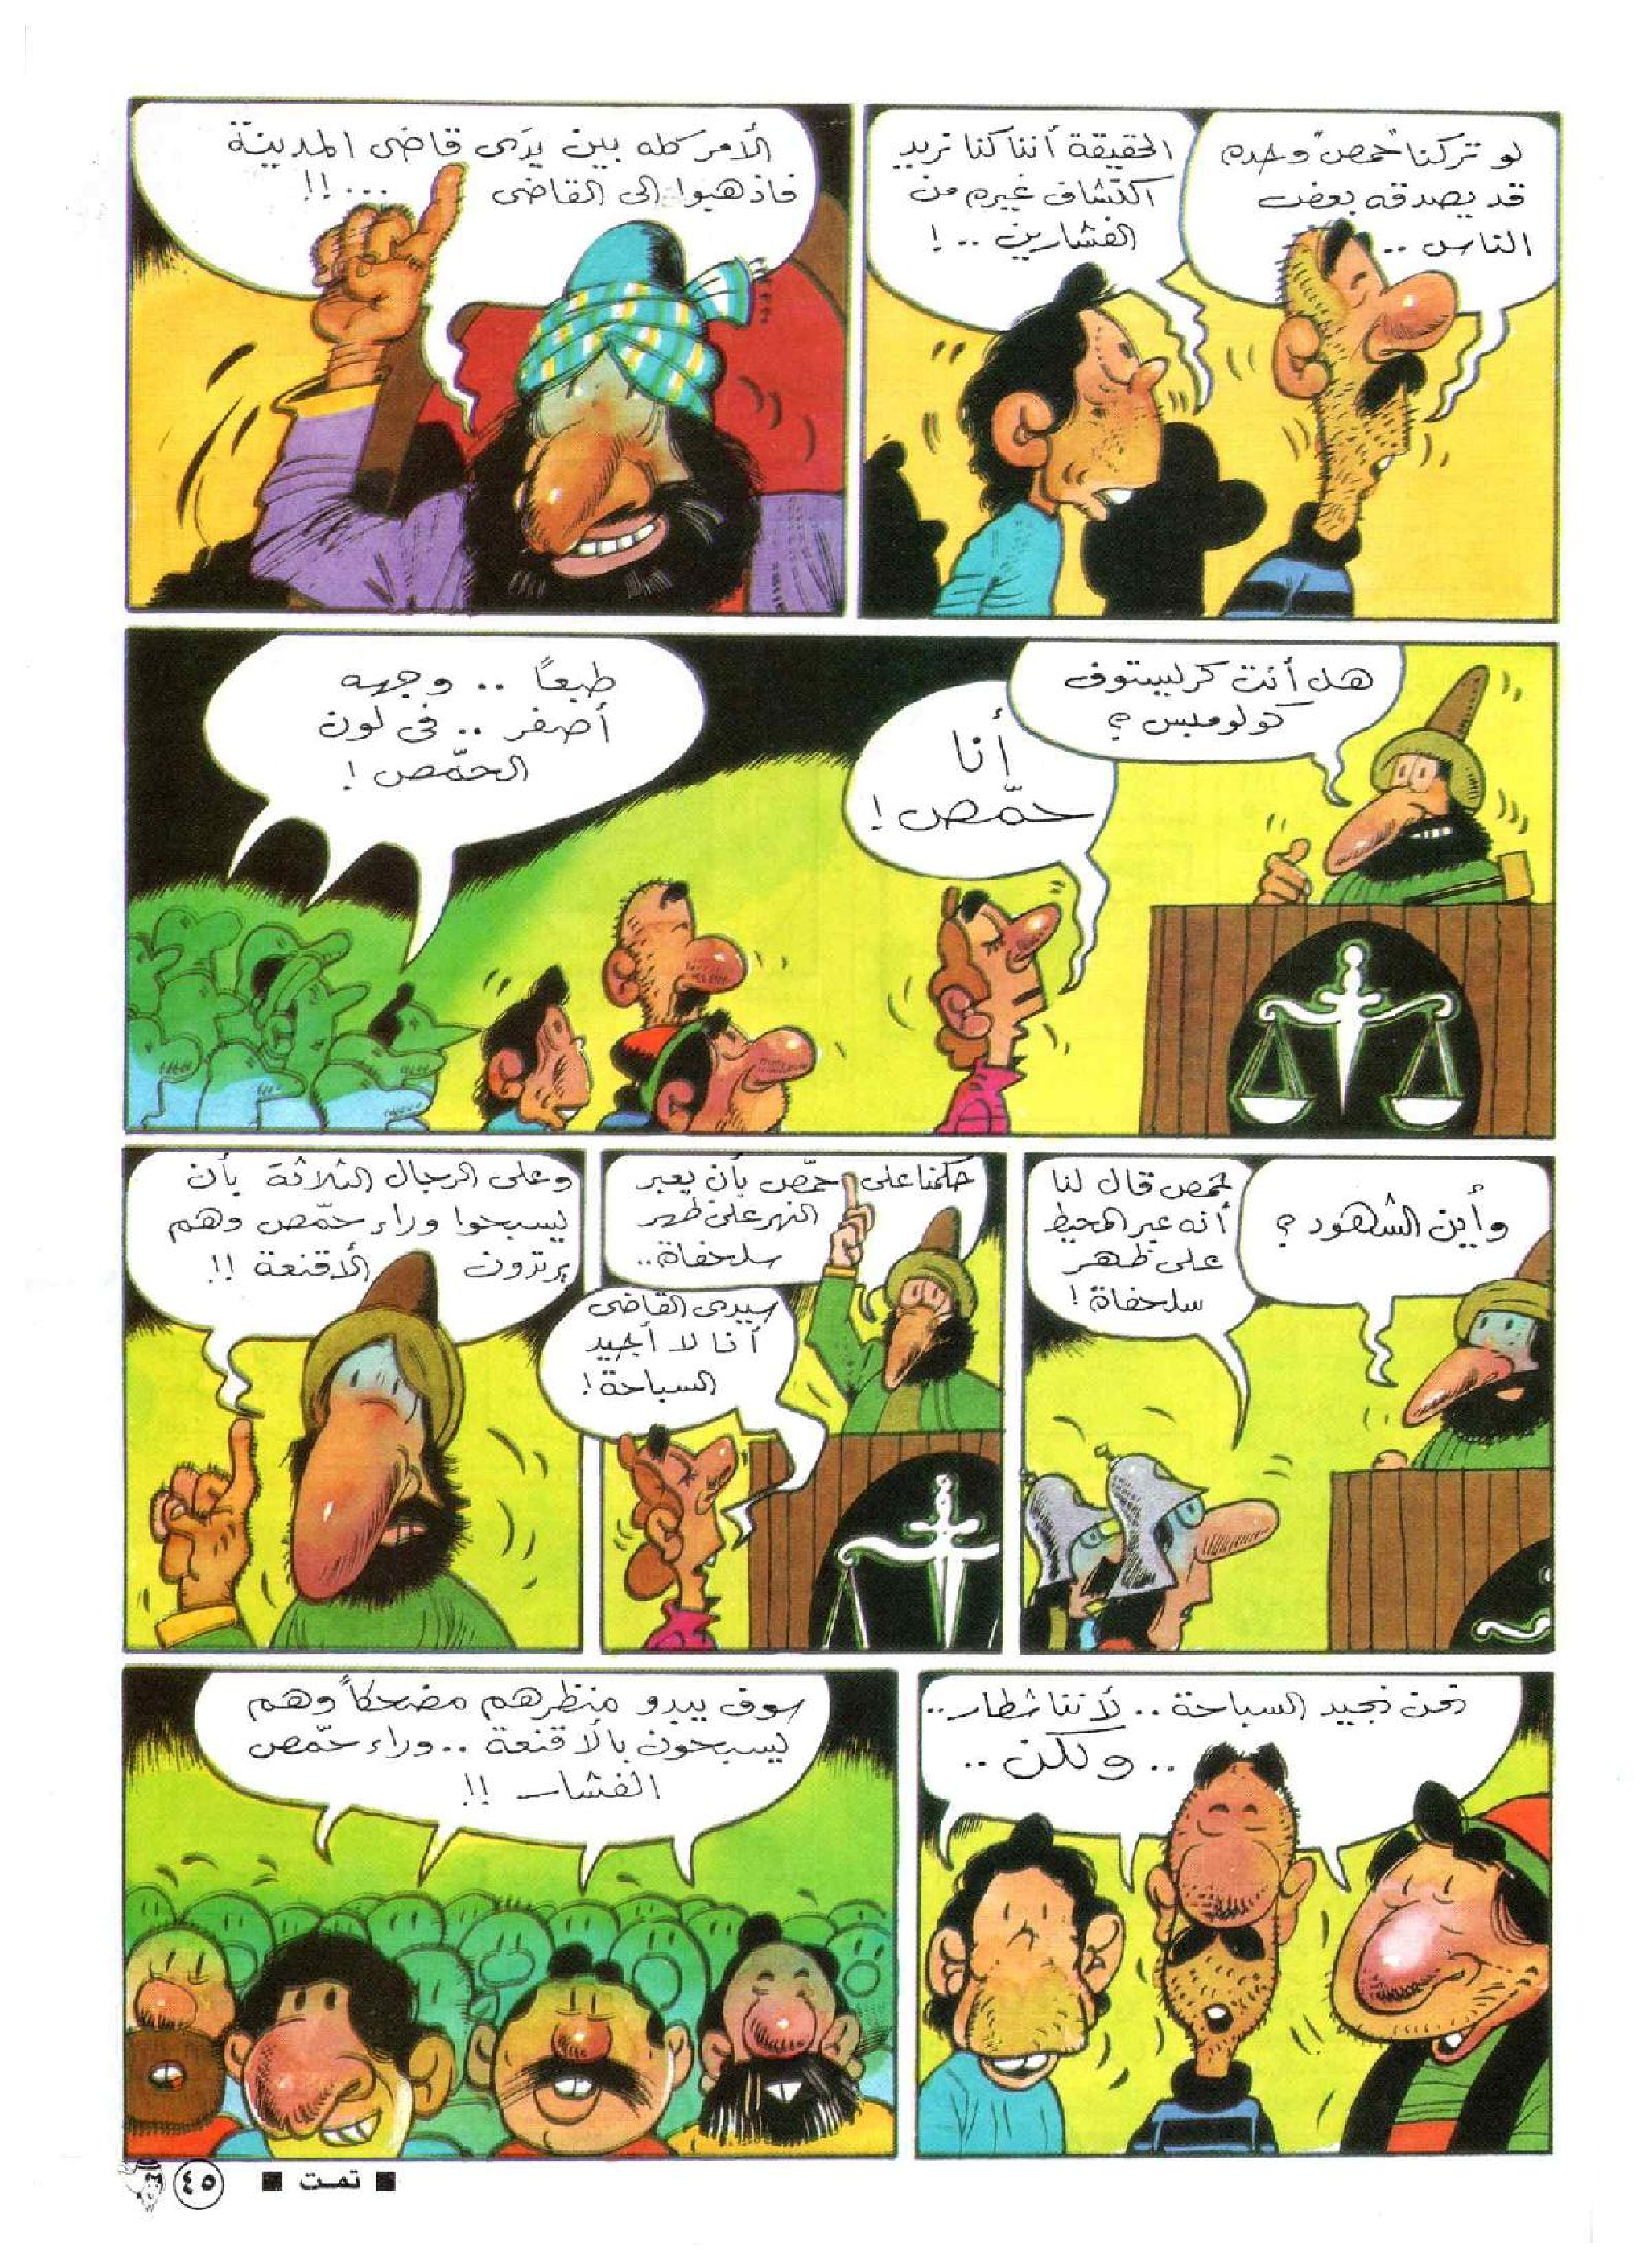 لو تركنا "حمص" وحده
قد يصدقه بعض
الناس ..
الحقيقة أننا كنا نريد
اكتشاف غيره من
الفشارين .. !
الأمر كله بين يدَى قاضى المدينة
فاذهبوا إلى القاضى ...!!
هل أنت كرليستوف
كولومبس ؟
أنا
حمّص !
طبعاً .. وجهه
أصفر .. فى لون
الحمّص !
وأين الشهود ؟
حمص قال لنا
أنه عبر المحيط
على ظهر
سلحفاة !
حكمنا على حمّص بأن يعبر
النهر على ظهر
سلحفاة ..
سيدى القاضى
أنا لا أجيد
السباحة !
وعلى الرجال الثلاثة بأن
يسبحوا وراء حمّص وهم
يرتدون الأقنعة !!
نحن نجيد السباحة .. لأننا شطار ..
.. ولكن ..
سوف يبدو منظرهم مضحكاً وهم
يسبحون بالأقنعة .. وراء حمّص
الفشار !!
■ تمت ■
٤٥